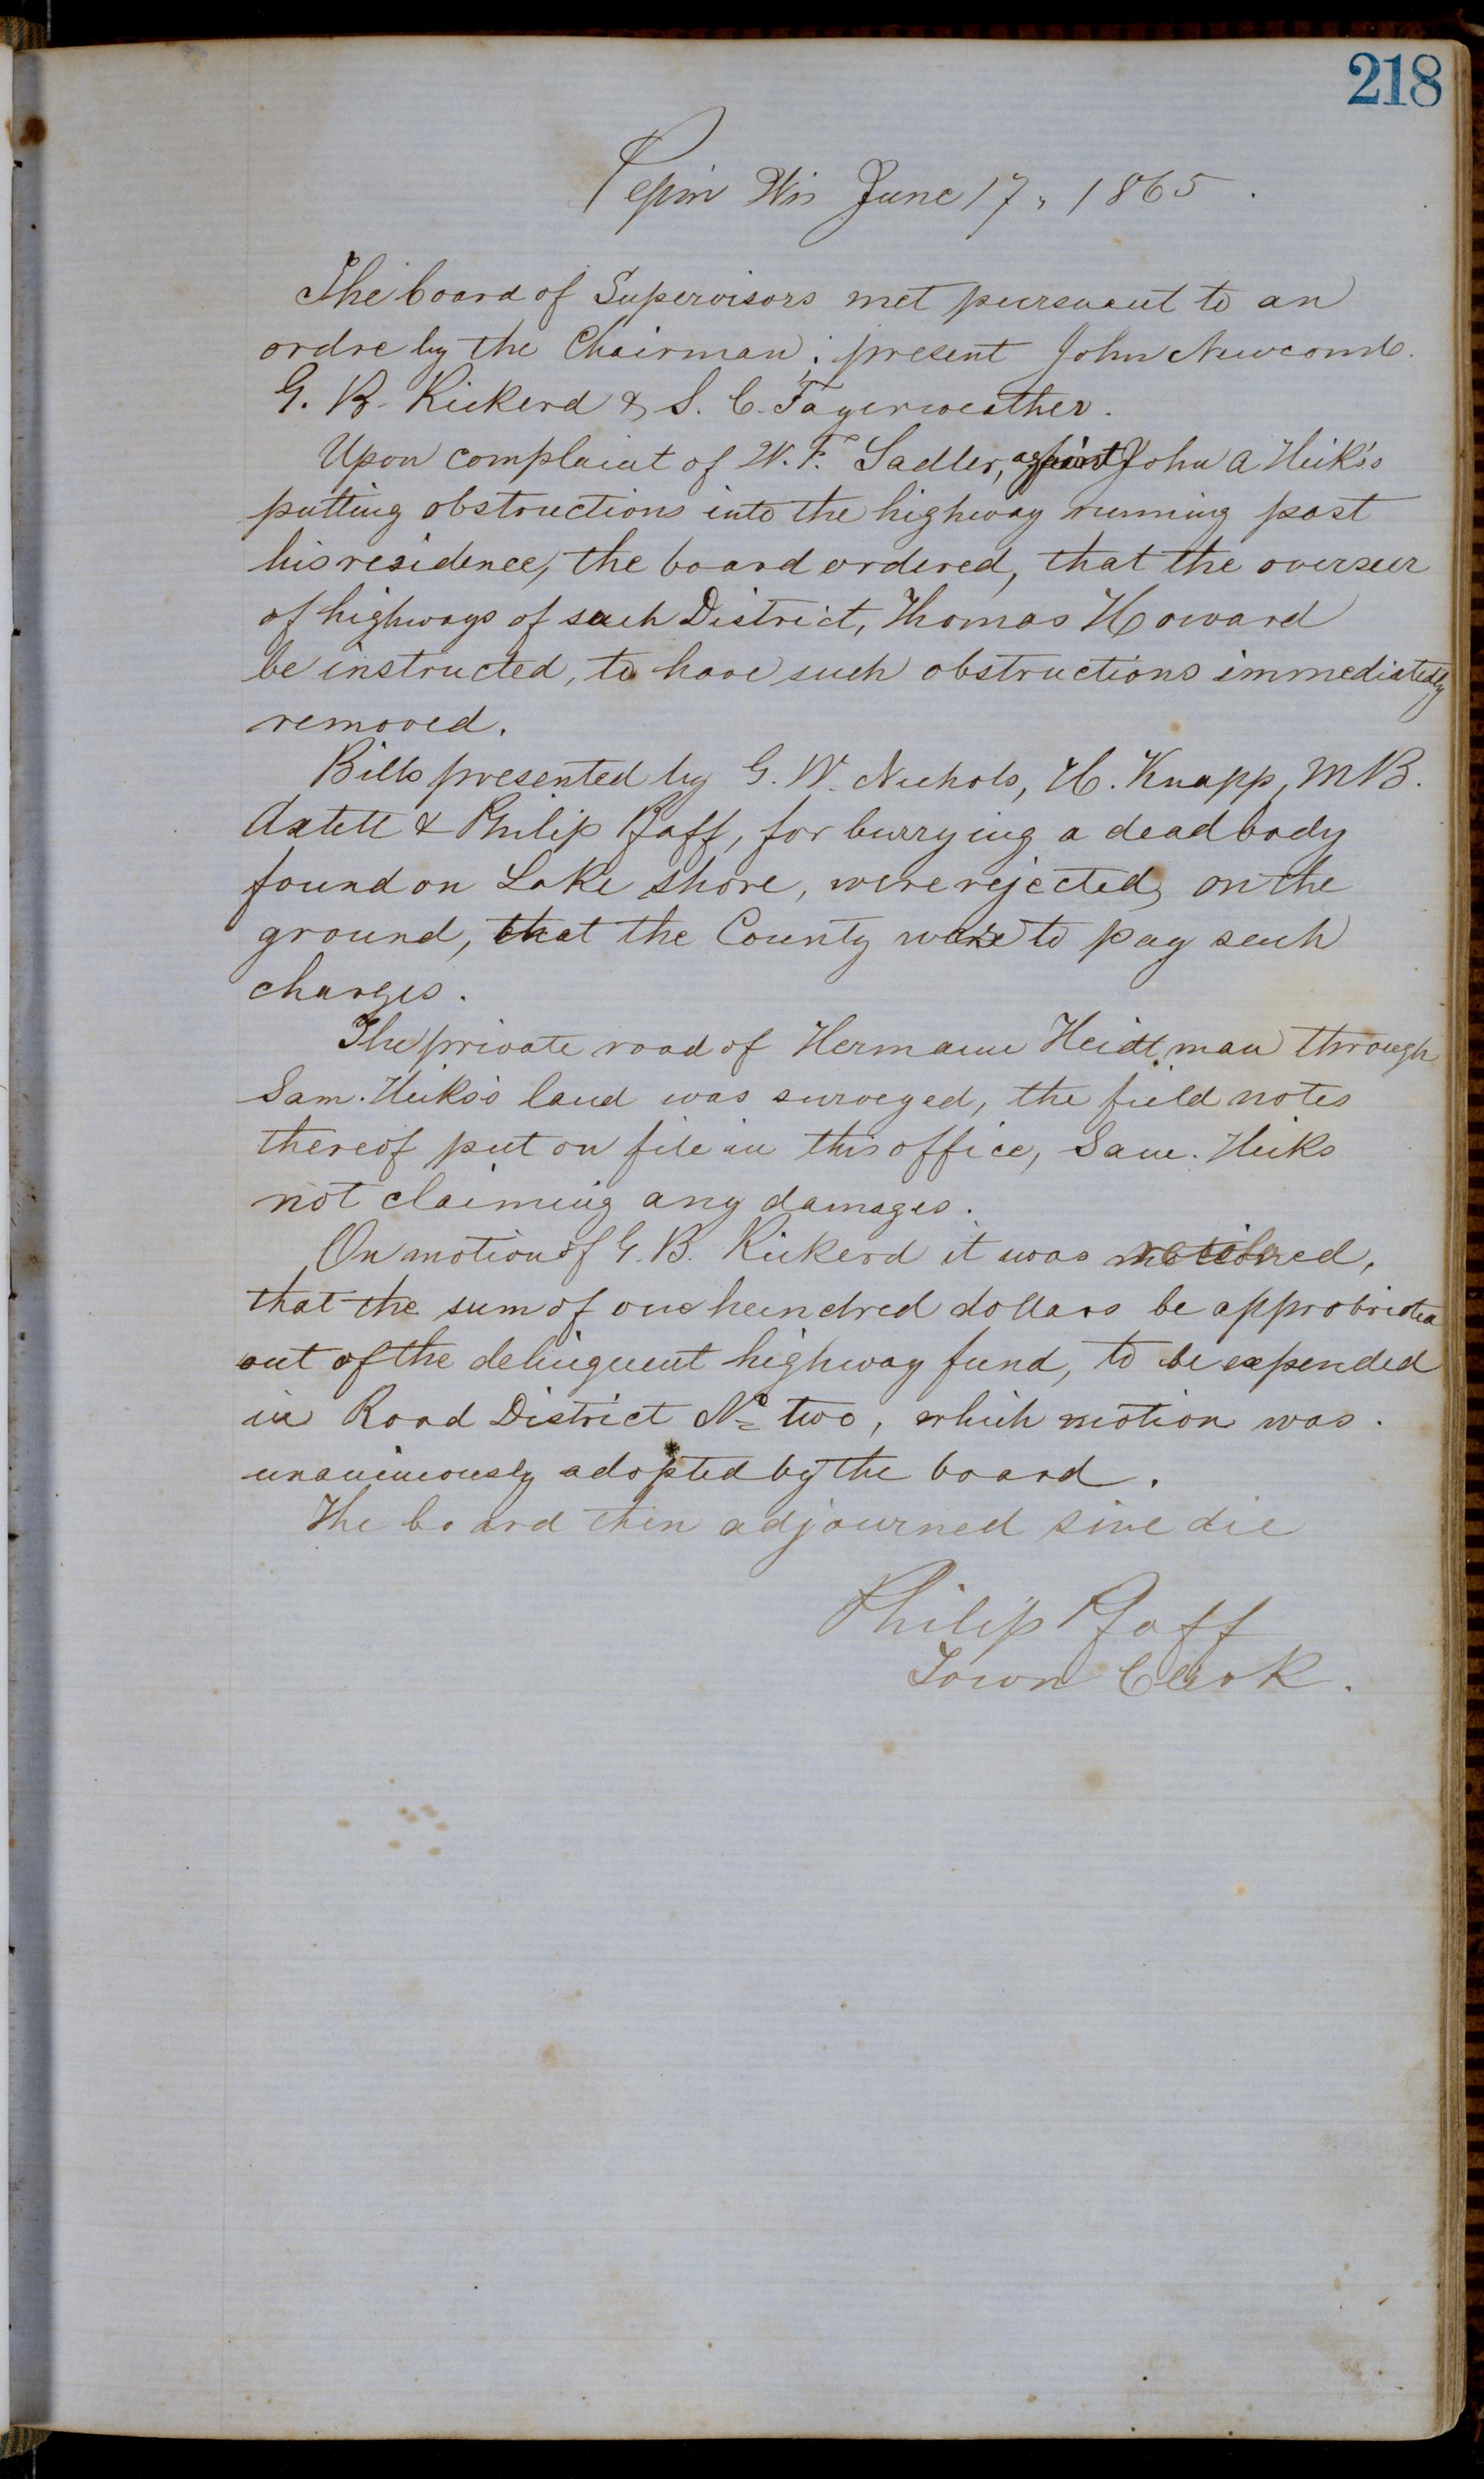 218
Pepin Wis June 17, 1865.
The board of Supervisors met pursuant to an
ordre by the Chairman; present John Newcomb.
G. B. Rickerd & S. C. Fayerweather.
Upon complaint of W. F. Sadler, against John A Hicks's
putting obstructions into the highway running past
his residence, the board ordered, that the overseer
of highways of such District, Thomas Howard
be instructed, to have such obstructions immediately
removed.
Bills presented by G. W. Nichols, H. Knapp, M B.
Axtell & Philip Pfaff, for burrying a dead body
found on Lake shore, were rejected, on the
ground, that the County were to pay such
charges.
The private road of Hermann Heidtman through
Sam. Hicks's land was surveyed, the field notes
thereof put on file in this office, Sam. Hicks
not claiming any damages.
On motion of G. B. Rickerd it was resolved,
that the sum of one hundred dollars be approbriated
out of the delinquent highway fund, to be expended
in Road District No two, which motion was.
unanimously adopted by the board.
The board then adjourned sine die
Philip Pfaff
Town Clerk.